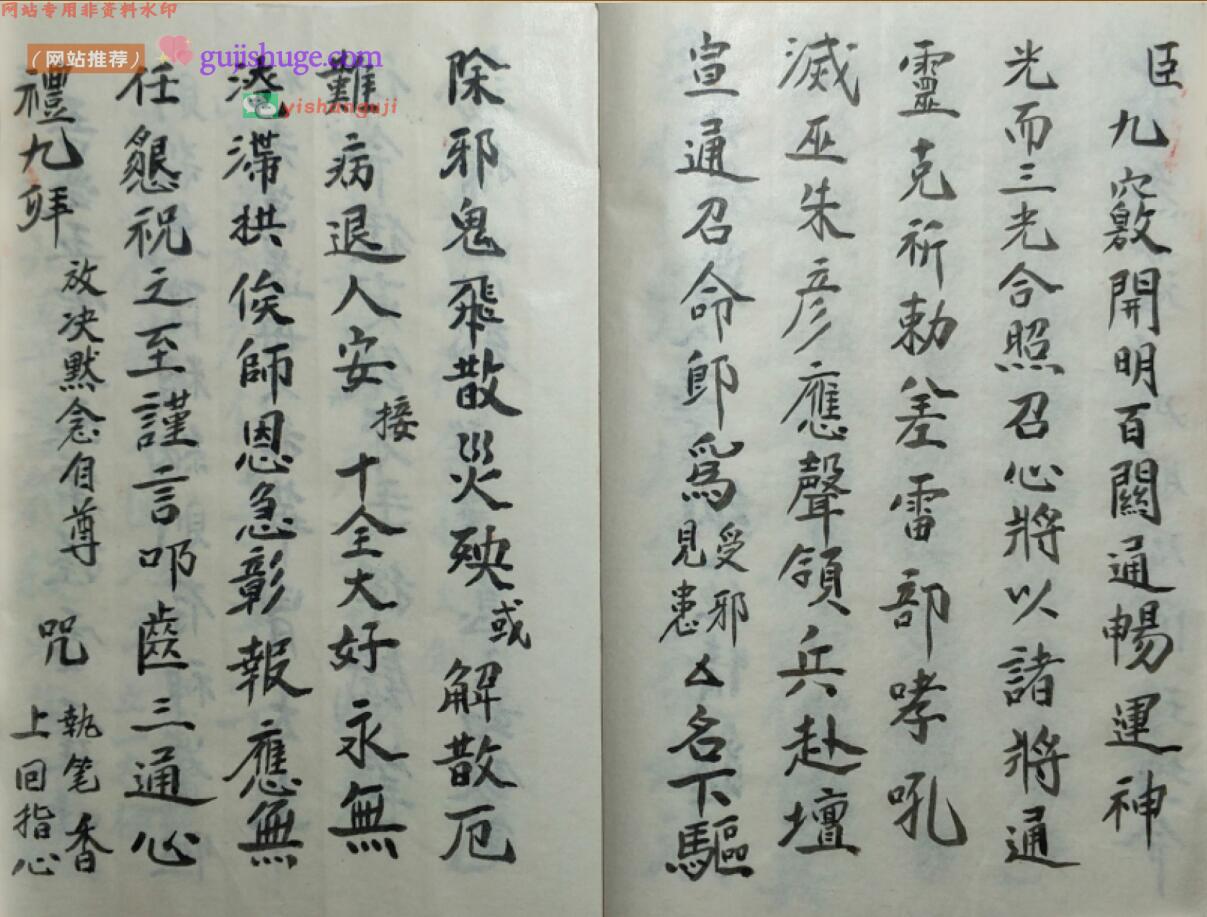 网站专用非资料水印
（网站推荐）
gujishuge.com
yishunguji
臣
九竅開明百關通暢運神
光而三光合照召心將以諸將通
靈克祈勅差雷部哮吼
滅巫朱彥應聲領兵赴壇
宣通召命即爲
受邪
見患
厶名下驅
除邪鬼飛散災殃
或
解散厄
難病退人安
接
十全大好永無
滯拱俟師恩急彰報應無
任懇祝之至謹言叩齒三通心
禮九拜
放决默念自尊
咒
執笔香
上回指心